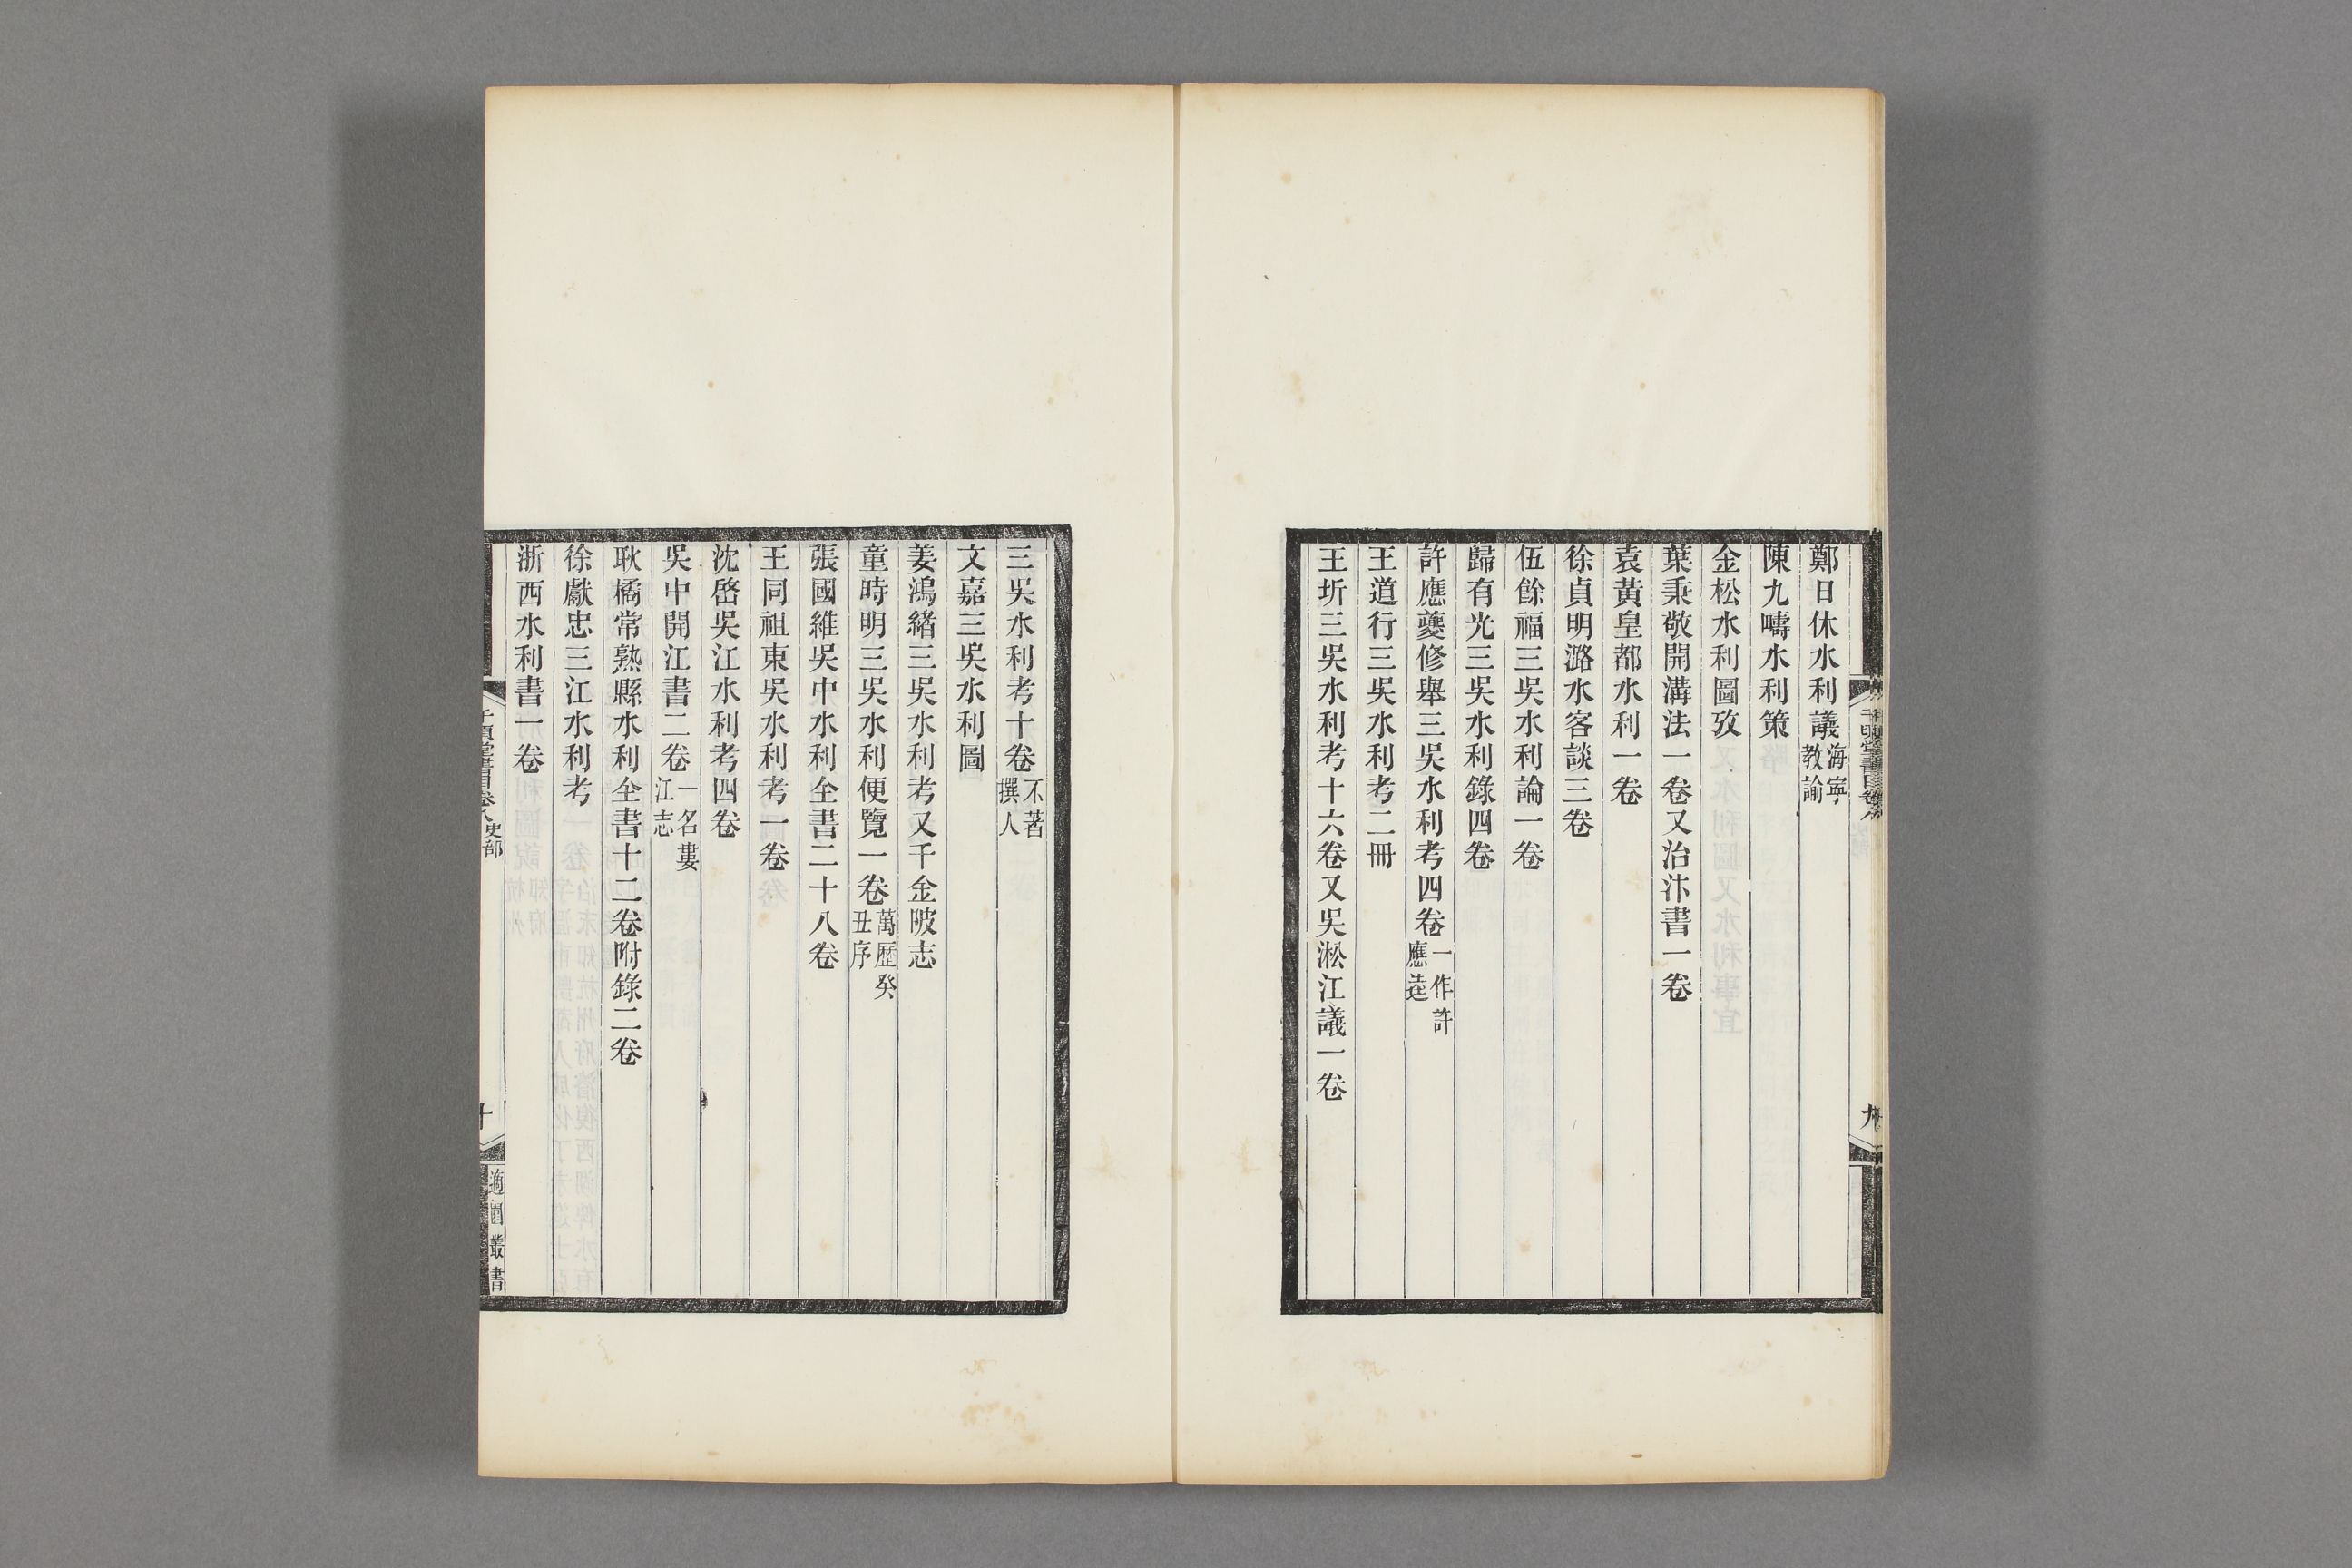 鄭日休水利議海寧教諭
陳九疇水利策
金松水利圖攷
葉秉敬開溝法一卷又治汴書一卷
袁黃皇都水利一卷
徐貞明潞水客談三卷
伍餘福三吳水利論一卷
歸有光三吳水利錄四卷
許應夔修舉三吳水利考四卷一作許應逵
王道行三吳水利考二冊
王圻三吳水利考十六卷又吳淞江議一卷
三吳水利考十卷不著撰人
文嘉三吳水利圖
姜鴻緒三吳水利考又千金陂志
童時明三吳水利便覽一卷萬歷癸丑序
張國維吳中水利全書二十八卷
王同祖東吳水利考一卷
沈啓吳江水利考四卷
吳中開江書二卷一名婁江志
耿橘常熟縣水利全書十二卷附錄二卷
徐獻忠三江水利考
浙西水利書一卷
千頃堂書目卷八史部
十
適園叢書